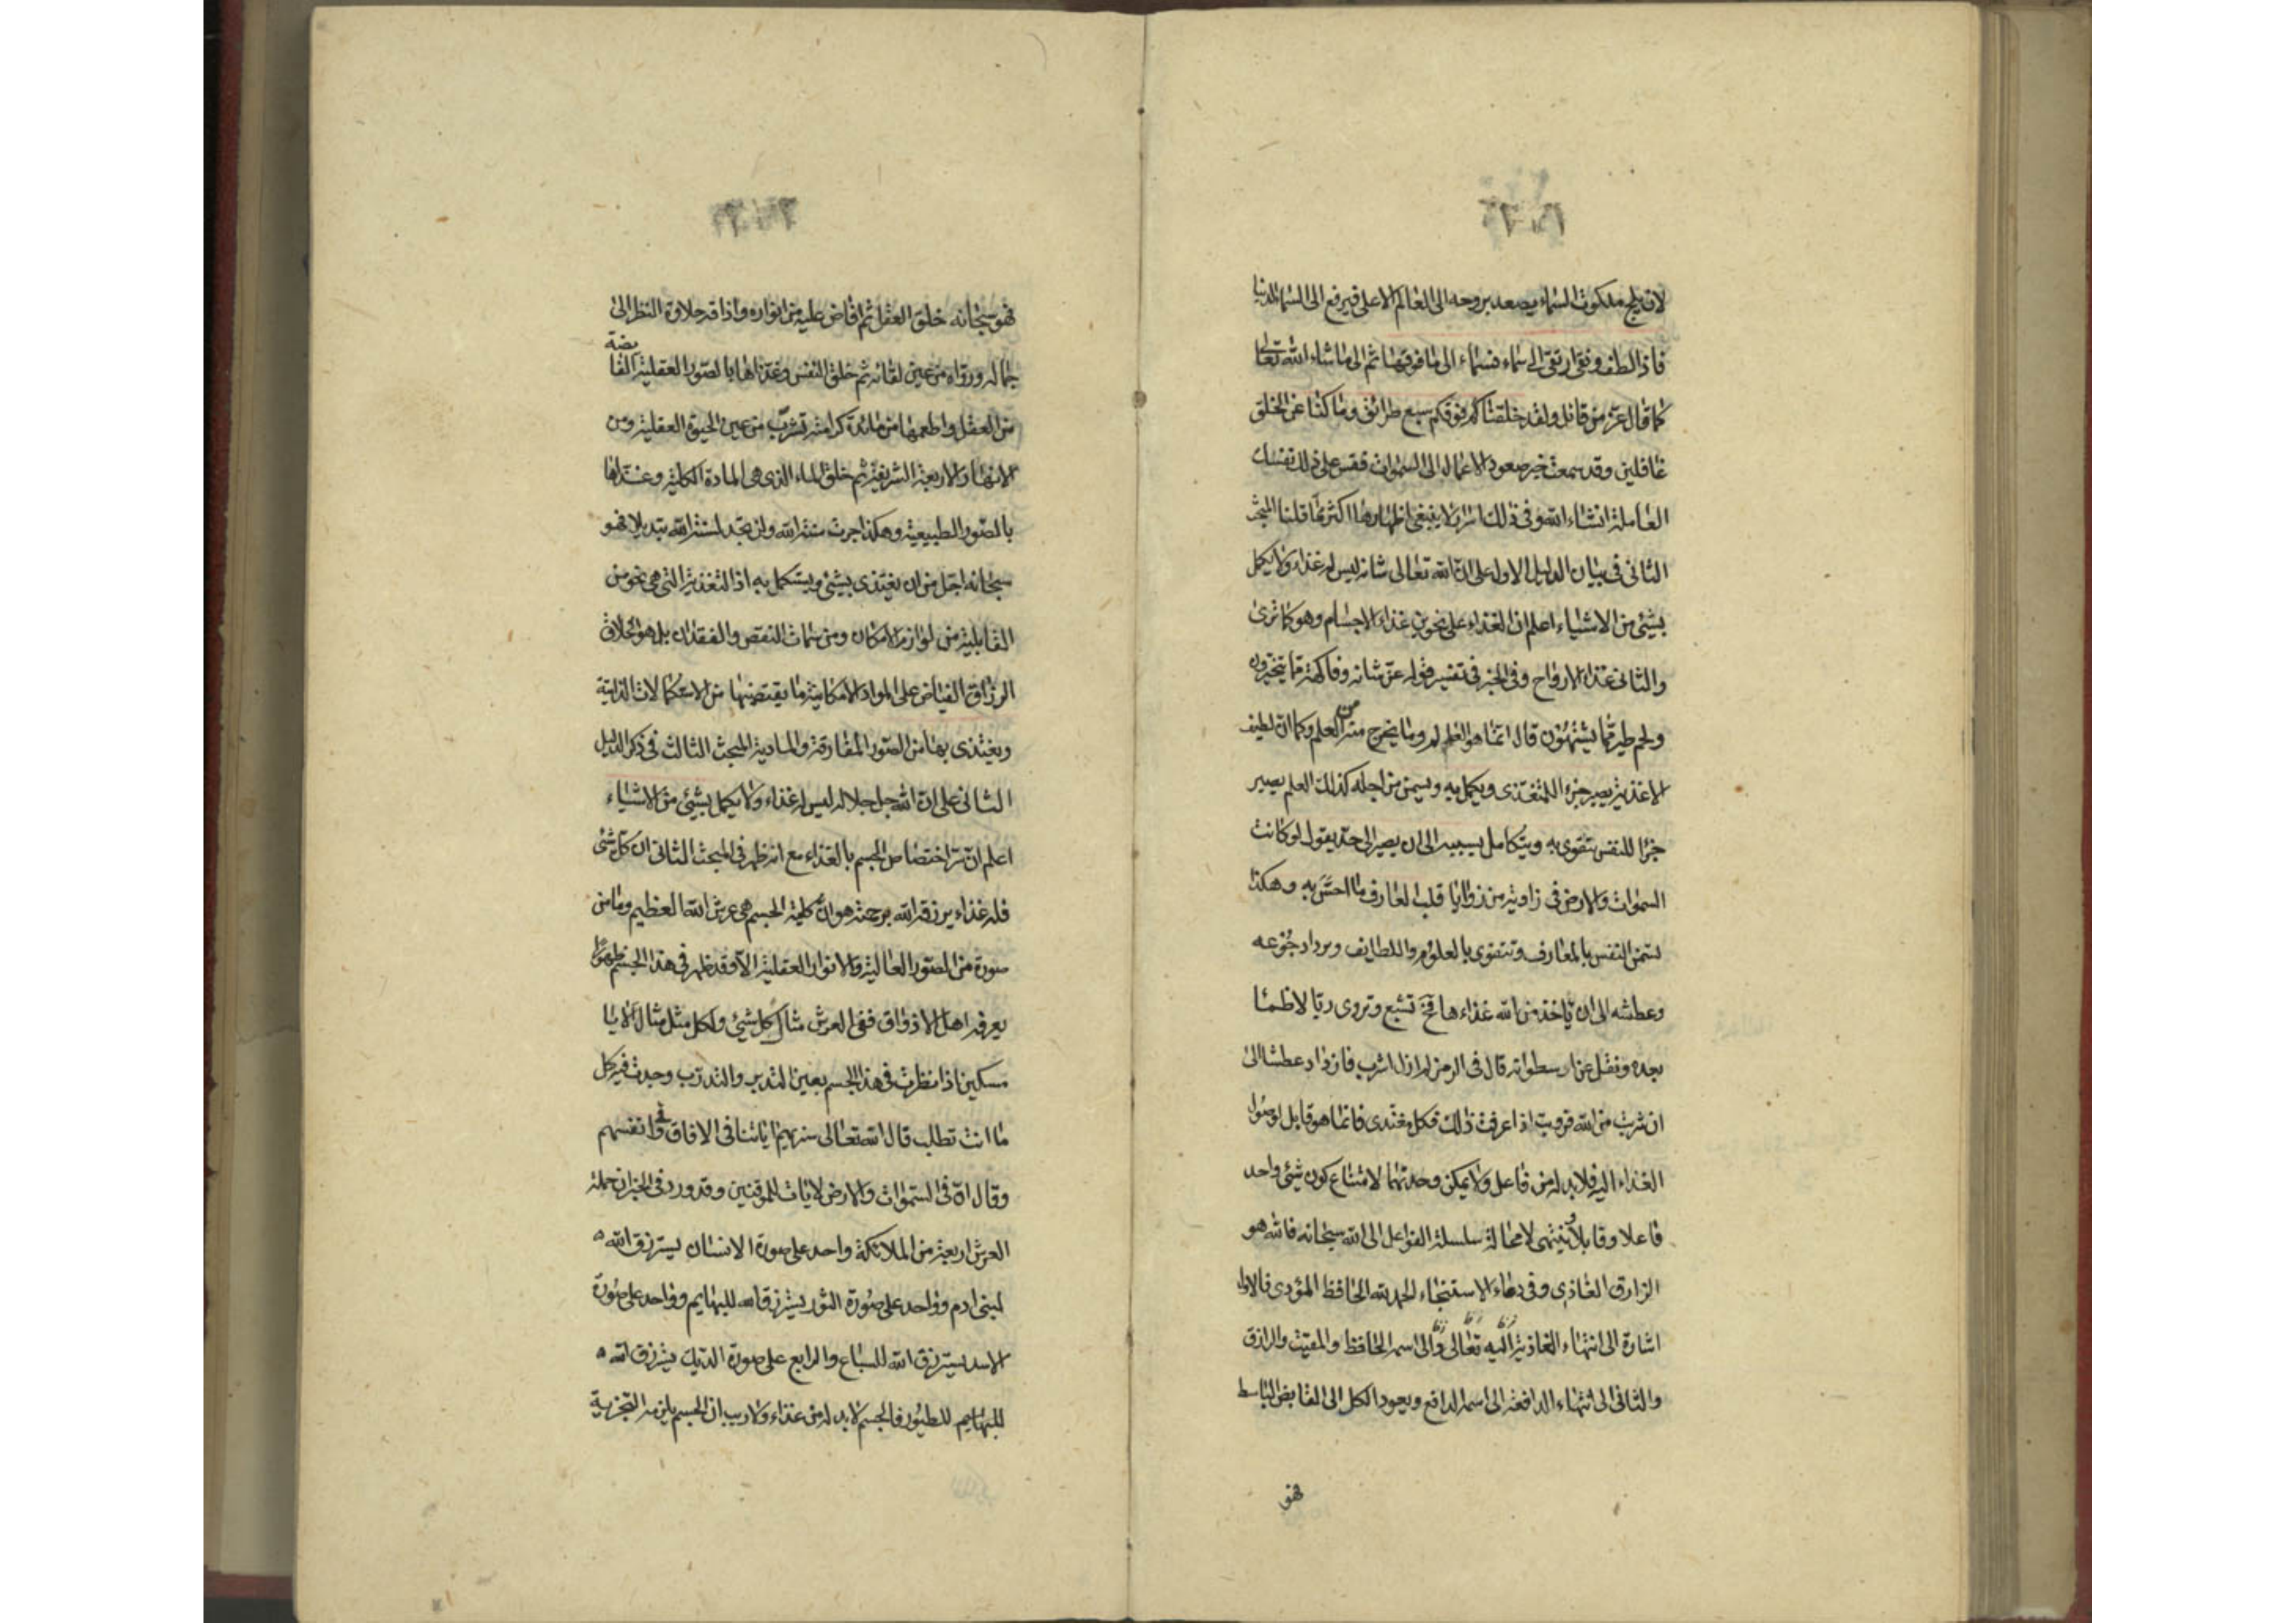 لان يلج ملكوت السماء يصعد بروحه الى العالم الاعلى فيرفع الى السماء الدنيا
فاذا لطف ونقى ارتقى الى سماء فسماء الى ما فوقها ثم الى ما شاء الله تعالى
كما قال عز من قائل ولقد خلقنا كم فوقكم سبع طرائق وما كنا عن الخلق
غافلين وقد سمعت خبر صعود الاعمال الى السموات فقس على ذلك نفسك
العاملة انشاء الله وفى ذلك اسرار لا ينبغى اظهارها اكثر مما قلنا المبحث
الثانى فى بيان الدليل الاول على ان الله تعالى شانه ليس له غذاء ولا يكمل
بشئ من الاشياء اعلم ان الغذاء على نحوين غذاء الاجسام وهو كما ترى
والثانى غذاء الارواح وفى الخبر فى تفسير قوله عز شانه وفاكهة مما يتخيرون
ولحم طير مما يشتهون قال انما هو العلم وما يخرج منه من العلم وكما ان لطيف
الاغذية يصير جزء المتغذى ويكمل به ويسمن من اجله كذلك العلم يصير
جزءا للنفس تتقوى به ويتكامل بسببه الى ان يصير الى حد يقول لو كانت
السموات والارض فى زاوية من زوايا قلب العارف ما احس به وهكذا
يسمن النفس بالمعارف وتتقوى بالعلوم واللطايف ويزداد جوعه
وعطشه الى ان ياخذ من الله غذاءها فح تشبع وتروى ريا لا ظمئا
بعده ونقل عن ارسطو انه قال فى الرمز لم ازل اشرب فازداد عطشا الى
ان شربت من الله فرويت اذا عرفت ذلك فكل مغتذى فانما هو قابل لوصول
الغذاء اليه فلا بد له من فاعل ولا يمكن وحدتهما لامتناع كون شئ واحد
فاعلا وقابلا وينتهى لا محالة سلسلة الفواعل الى الله سبحانه فالله هو
الرازق الغاذى وفى دعاء الاستنجاء الحمد لله الحافظ المؤدى فالاول
اشارة الى انتهاء الغاذية اليه تعالى والى اسمه الحافظ والمقيت والرازق
والثانى الى انتهاء الدافعة الى اسمه الدافع ويعود الكل الى القابض الباسط
فهو
فهو سبحانه خلق العقل ثم افاض عليه من انواره واذاقه حلاوة النظر الى
جماله ورواه من عين لقائه ثم خلق النفس وغذاها بالصور العقلية الفا
يضة
من العقل واطعمها من مائدة كرامته تشرب من عين الحيوة العقلية ومن
الانهار الاربعة الشريفة ثم خلق الماء الذى هى المادة الكلية وغذاها
بالصور الطبيعية وهكذا جرت سنة الله ولن تجد لسنة الله تبديلا فهو
سبحانه اجل من ان يغتذى بشئ ويستكمل به اذ التغذية التى هى نحو من
القابلية من لوازم الامكان ومن سمات النقص والفقدان بل هو الخلاق
الرزاق الفياض على المواد الامكانية ما يقتضيها من الاستكمالات الذاتية
ويغتذى بها من الصور المفارقة والمادية المبحث الثالث فى ذكر الدليل
الثانى على ان الله جل جلاله ليس له غذاء ولا يكمل بشئ من الاشياء
اعلم ان سر اختصاص الجسم بالغذاء مع انه ظهر فى المبحث الثانى ان كل شئ
فله غذاء يرزقه الله برحمته هو ان كلية الجسم هى عرش الله العظيم وما من
صورة من الصور العالية والانوار العقلية الا وقد ظهر فى هذا الجسم ظهورا
يعرفه اهل الاذواق ففى العرش مثال كل شئ ولكل مثل مثال الا يا
مسكين اذا نظرت فى هذا الجسم بعين التدبر والتدرب وجدت فيه كل
ما انت تطلب قال الله تعالى سنريهم اياتنا فى الافاق وفى انفسهم
وقال ان فى السموات والارض لايات للموقنين وقد ورد فى الخبر ان حملة
العرش اربعة من الملائكة واحد على صورة الانسان يسترزق الله
لبنى ادم وواحد على صورة الثور يسترزق الله للبهايم وواحد على صورة
الاسد يسترزق الله للسباع والرابع على صورة الديك يسترزق الله
للبهايم للطيور فالجسم لا بد له من غذاء ولا ريب ان الجسم يلزمه التجزية